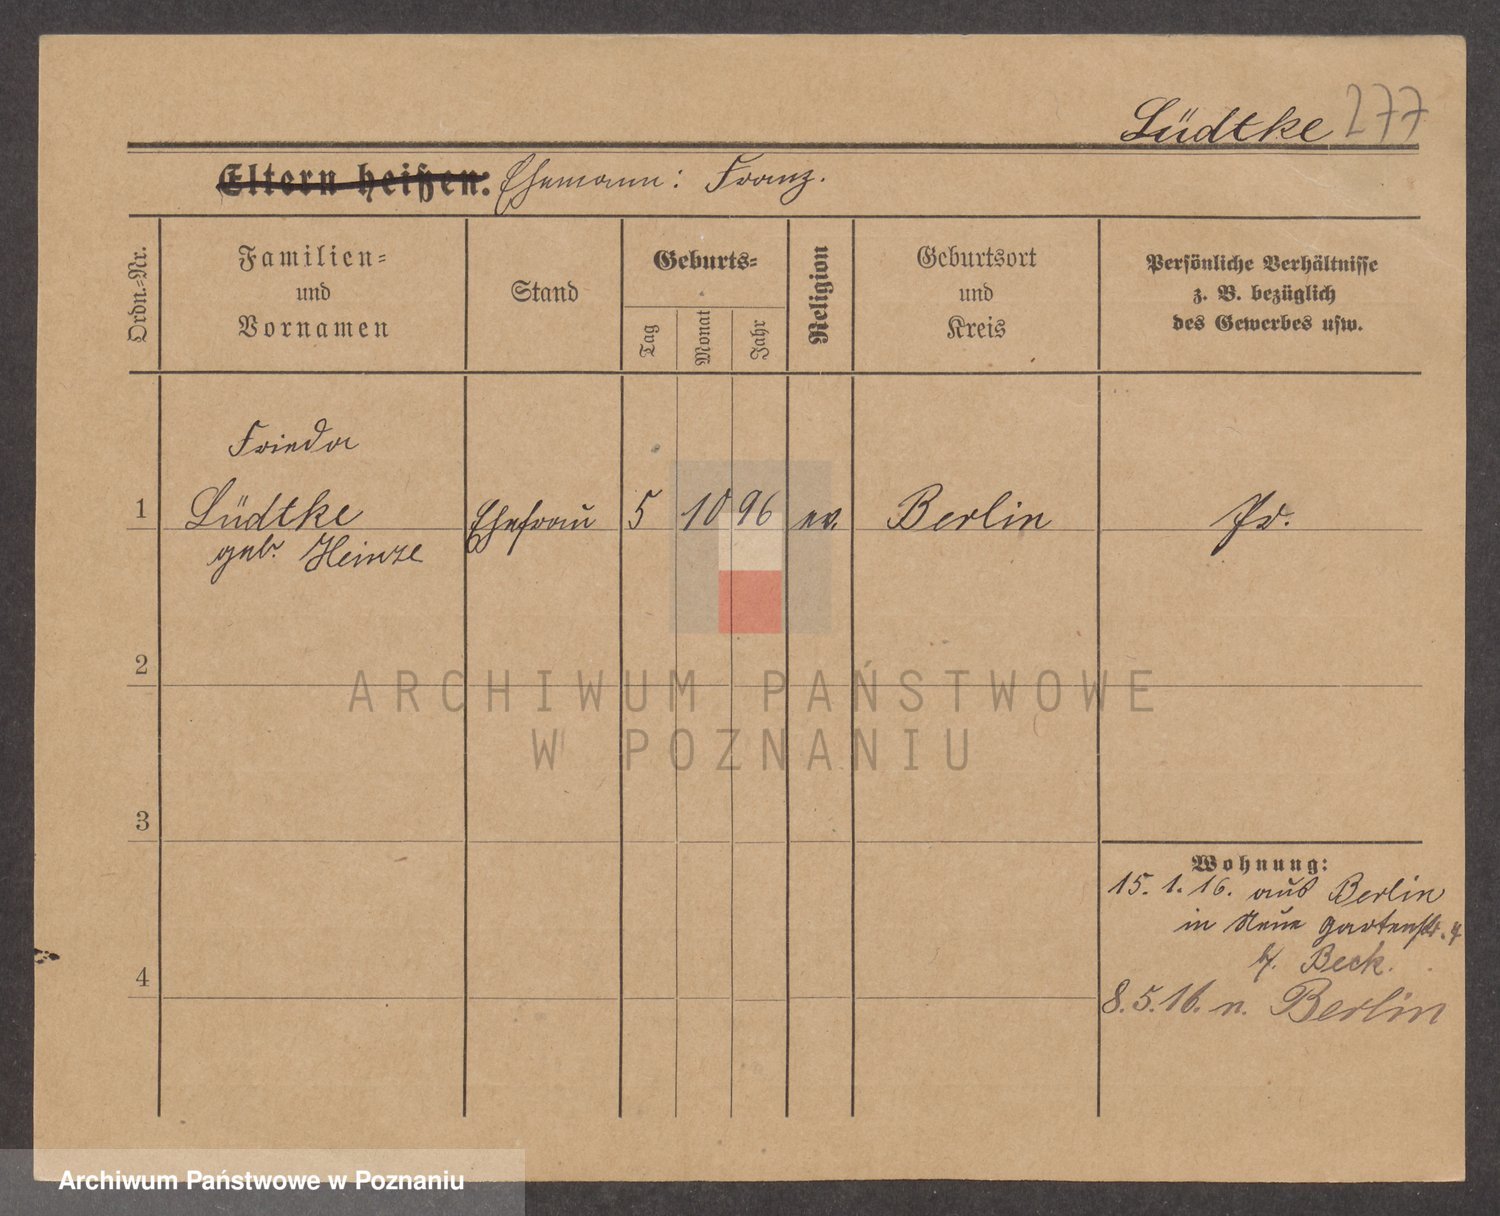 Lüdtke 277
Eltern heißen: Ehemann: Franz.
Ordn.=Nr.
Familien=
und
Vornamen
Stand
Geburts=
Tag
Monat
Jahr
Religion
Geburtsort
und
Kreis
Persönliche Verhältnisse
z. B. bezüglich
des Gewerbes usw.
Frieda
1 Lüdtke Ehefrau 5 10 96 ev. Berlin Pr.
geb. Heinze
2
ARCHIWUM PAŃSTWOWE
W POZNANIU
3
Wohnung:
15. 1. 16. aus Berlin
in Neue Gartenstr. 4
b/. Beck.
4
8. 5. 16. n. Berlin
Archiwum Państwowe w Poznaniu